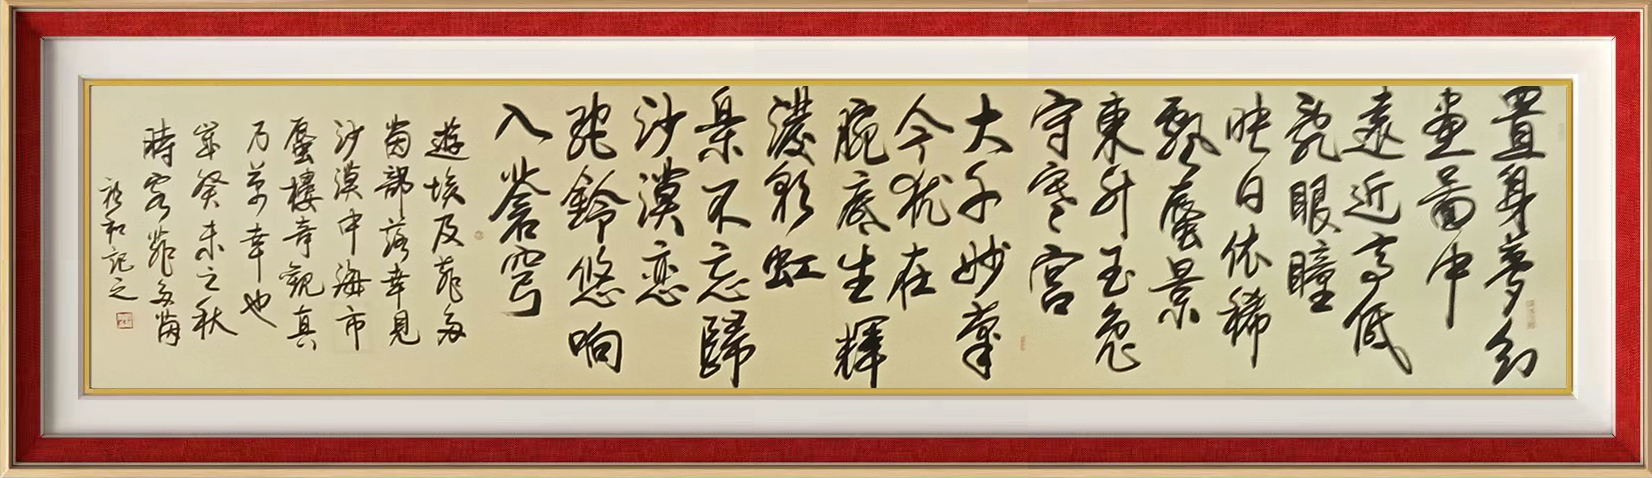 置身夢幻
畫圖中
遠近高低
亂眼瞳
映日依稀
飄蜃景
東升玉兔
守寒宮
大千妙筆
今犹在
腕底生輝
彩虹
不忘歸
沙漠恋
駝鈴悠响
入蒼穹
遊埃及菲多
茵部落幸見
沙漠中海市
蜃樓奇觀真
乃萬幸也
癸未之秋
時客菲多茵
和記之